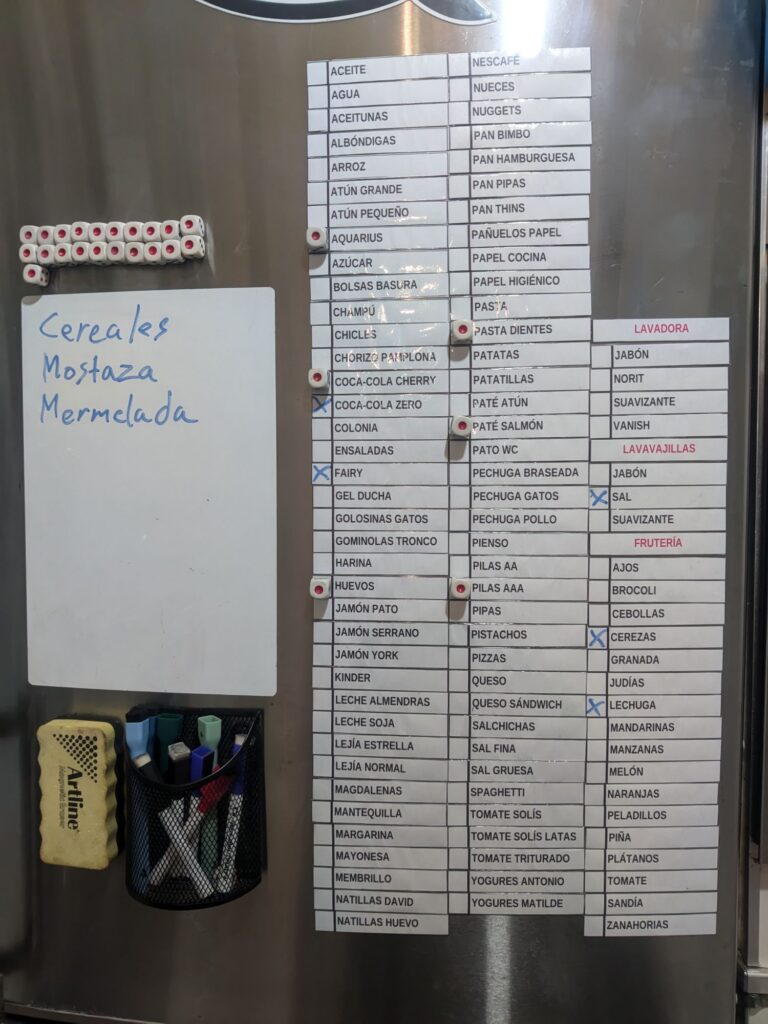 Cereales
Mostaza
Mermelada
Artline
ACEITE
AGUA
ACEITUNAS
ALBÓNDIGAS
ARROZ
ATÚN GRANDE
ATÚN PEQUEÑO
AQUARIUS
AZÚCAR
BOLSAS BASURA
CHAMPÚ
CHICLES
CHORIZO PAMPLONA
COCA-COLA CHERRY
COCA-COLA ZERO
COLONIA
ENSALADAS
FAIRY
GEL DUCHA
GOLOSINAS GATOS
GOMINOLAS TRONCO
HARINA
HUEVOS
JAMÓN PATO
JAMÓN SERRANO
JAMÓN YORK
KINDER
LECHE ALMENDRAS
LECHE SOJA
LEJÍA ESTRELLA
LEJÍA NORMAL
MAGDALENAS
MANTEQUILLA
MARGARINA
MAYONESA
MEMBRILLO
NATILLAS DAVID
NATILLAS HUEVO
NESCAFÉ
NUECES
NUGGETS
PAN BIMBO
PAN HAMBURGUESA
PAN PIPAS
PAN THINS
PAÑUELOS PAPEL
PAPEL COCINA
PAPEL HIGIÉNICO
PASTA
PASTA DIENTES
PATATAS
PATATILLAS
PATÉ ATÚN
PATÉ SALMÓN
PATO WC
PECHUGA BRASEADA
PECHUGA GATOS
PECHUGA POLLO
PIENSO
PILAS AA
PILAS AAA
PIPAS
PISTACHOS
PIZZAS
QUESO
QUESO SÁNDWICH
SALCHICHAS
SAL FINA
SAL GRUESA
SPAGHETTI
TOMATE SOLÍS
TOMATE SOLÍS LATAS
TOMATE TRITURADO
YOGURES ANTONIO
YOGURES MATILDE
LAVADORA
JABÓN
NORIT
SUAVIZANTE
VANISH
LAVAVAJILLAS
JABÓN
SAL
SUAVIZANTE
FRUTERÍA
AJOS
BROCOLI
CEBOLLAS
CEREZAS
GRANADA
JUDÍAS
LECHUGA
MANDARINAS
MANZANAS
MELÓN
NARANJAS
PELADILLOS
PIÑA
PLÁTANOS
TOMATE
SANDÍA
ZANAHORIAS